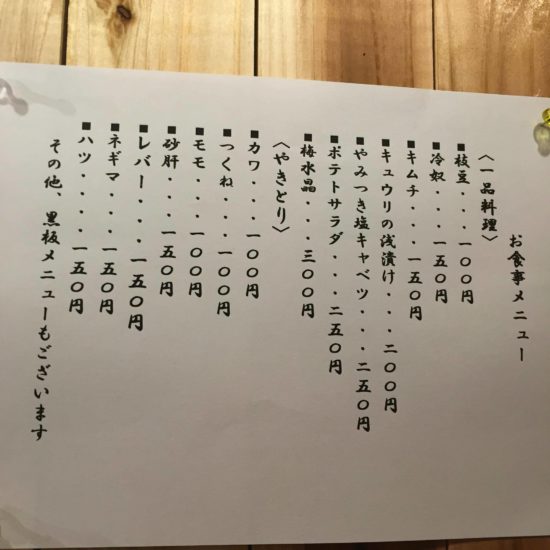 お食事メニュー
〈一品料理〉
■枝豆・・・一〇〇円
■冷奴・・・・一五〇円
■キムチ・・・一五〇円
■キュウリの浅漬け・・・二〇〇円
■やみつき塩キャベツ・・・二五〇円
■ポテトサラダ・・・二五〇円
■梅水晶・・・・三〇〇円
〈やきとり〉
■カワ・・・一〇〇円
■つくね・・・一〇〇円
■モモ・・・・一〇〇円
■砂肝・・・一五〇円
■レバー・・・・一五〇円
■ネギマ・・・・一五〇円
■ハツ・・・・一五〇円
その他、黒板メニューもございます